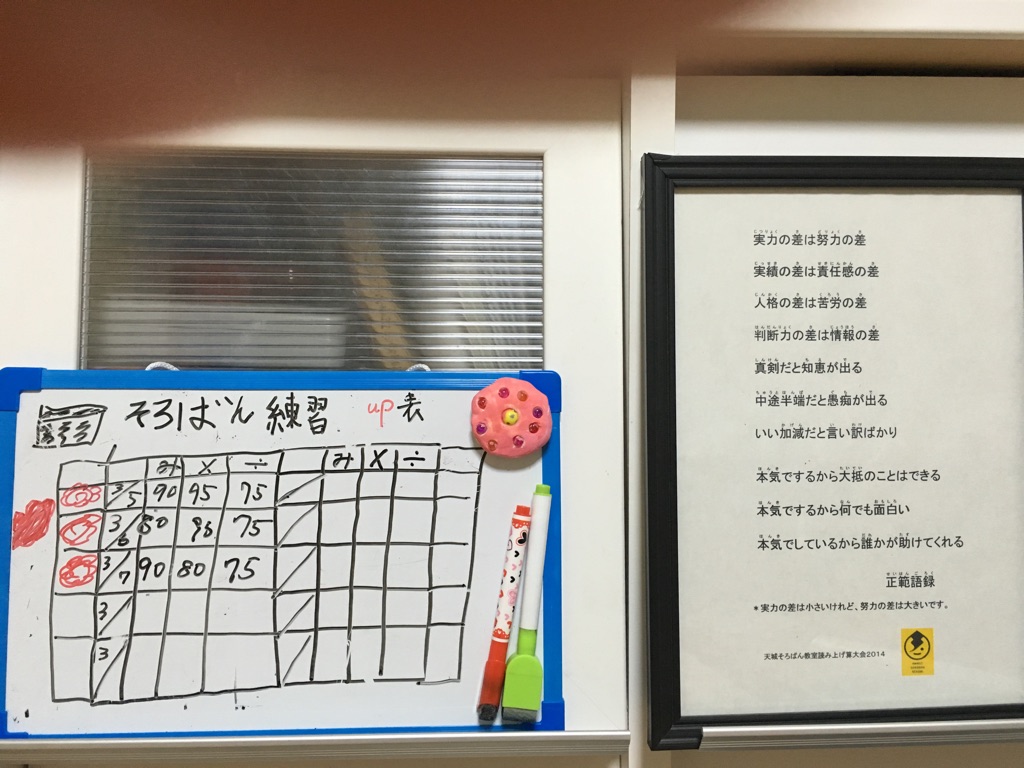 そろばん 練習 up表
み × ÷ み × ÷
3/5 90 95 75
3/6 80 95 75
3/7 90 80 75
3/
3/
実力の差は努力の差
実績の差は責任感の差
人格の差は苦労の差
判断力の差は情報の差
真剣だと知恵が出る
中途半端だと愚痴が出る
いい加減だと言い訳ばかり
本気でするから大抵のことはできる
本気でするから何でも面白い
本気でしているから誰かが助けてくれる
正範語録
*実力の差は小さいけれど、努力の差は大きいです。
天城そろばん教室読み上げ算大会2014